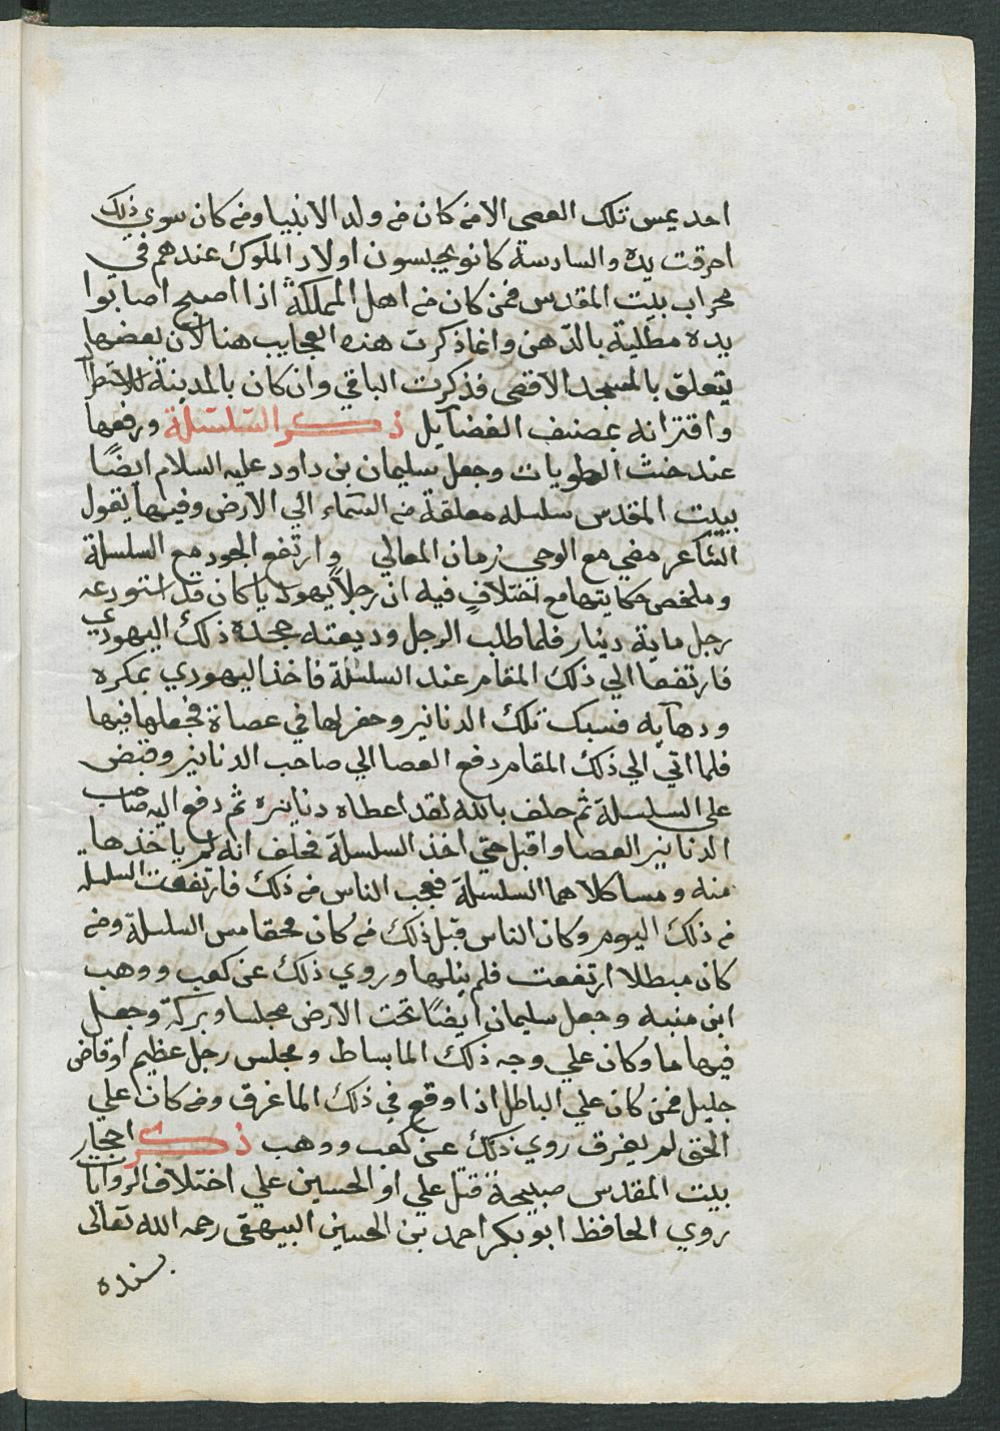 احد يمس تلك العصى الا من كان من ولد الانبيا ومن كان سوي ذلك
احرقت يده والسادسة كانو يحبسون اولاد الملوك عندهم في
محراب بيت المقدس فمن كان من اهل المملكة اذا اصبح اصابوا
يده مطلية بالدهن وانما ذكرت هذه العجايب هنا لان بعضها
يتعلق بالمسجد الاقصى فذكرت الباقي وان كان بالمدينة للاستطراد
واقترانه بمصنف الفضآيل ذكر السلسلة ورفعها
عند خبث الطويات وجعل سليمان بن داود عليه السلام ايضًا
ببيت المقدس سلسله معلقة من السمآء الي الارض وفيها يقول
الشاعر مضي مع الوحي زمان المعالي وارتفع الجود مع السلسلة
وملخص حكايتها مع اختلافٍ فيه ان رجلاً يهوديا كان قد استودعه
رجل ماية دينار فلما طلب الرجل وديعته جحده ذلك اليهودي
فارتفعا الي ذلك المقام عند السلسلة فاخذ اليهودي بمكره
ودهآيه فسبك تلك الدنانير وحفر لها في عصاة فجعلها فيها
فلما اتي الي ذلك المقام دفع العصا الي صاحب الدنانير وقبض
علي السلسلة ثم حلف بالله لقد اعطاه دنانيره ثم دفع اليه صاحب
الدنانير العصا واقبل حتي اخذ السلسلة فحلف انه لم ياخذها
منه ومسا كلاهما السلسلة فعجب الناس من ذلك فارتفعت السلسله
من ذلك اليوم وكان الناس قبل ذلك من كان محقا مس السلسلة ومن
كان مبطلا ارتفعت فلم ينلها وروي ذلك عن كعب ووهب
ابن منبه وجعل سليمان ايضًا تحت الارض مجلسا وبركة وجعل
فيها ما وكان علي وجه ذلك الما بساط ومجلس رجل عظيم او قاض
جليل فمن كان علي الباطل اذا وقع في ذلك الما غرق ومن كان علي
الحق لم يغرق روي ذلك عن كعب ووهب ذكر احجار
بيت المقدس صبيحة قتل علي او الحسين علي اختلاف الروايات
روي الحافظ ابو بكر احمد بن الحسين البيهقى رحمه الله تعالى
بسنده